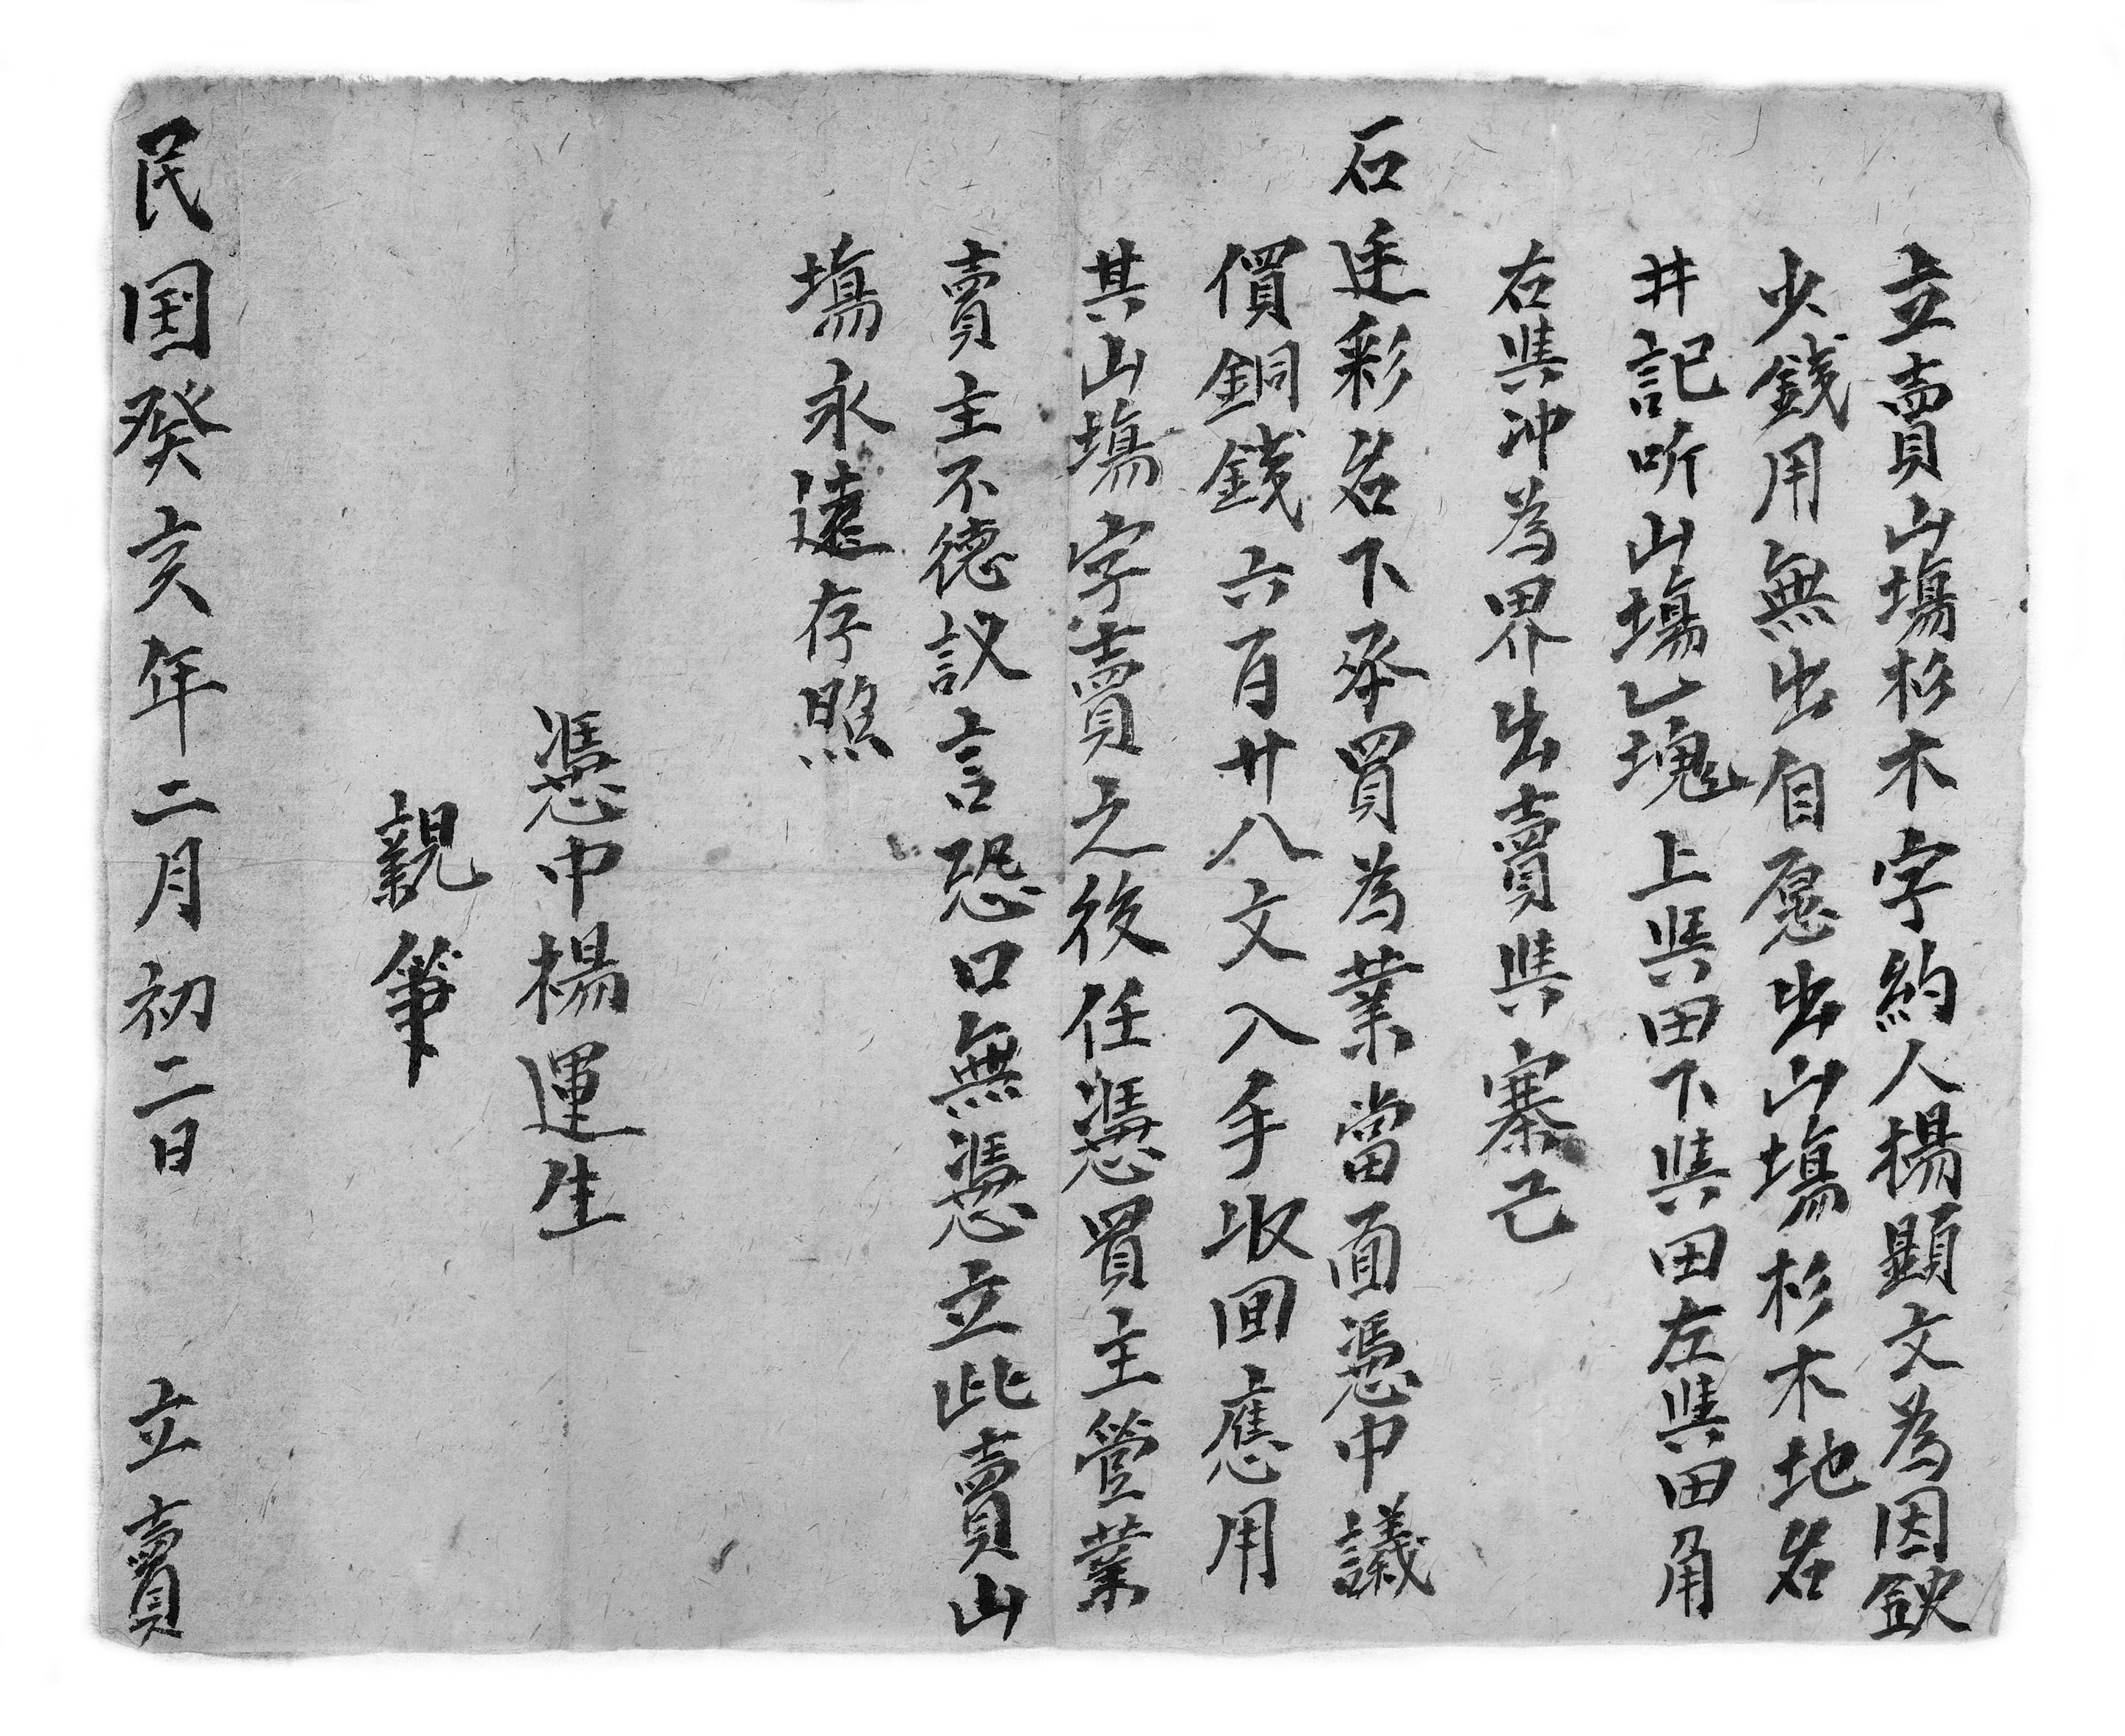 立賣山塲杉木字約人楊顕文為因缺
少錢用無出自愿出山塲杉木地名
井記听山塲乙塊上與田下與田左與田角
右與冲為界出賣與寨己
石廷彩名下承買為業當面憑中議
價銅錢六百廿八文入手收回應用
其山塲字賣之後任憑買主管業
賣主不德議言恐口無憑立此賣山
塲永遠存照
憑中楊運生
親筆
民国癸亥年二月初二日 立賣